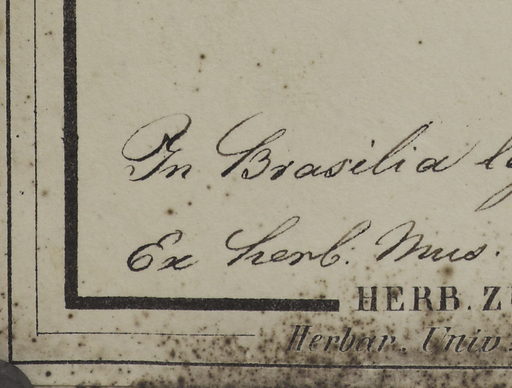 In Brasilia
Ex herb. Mus.
HERB. Z
Herbar. Univ.